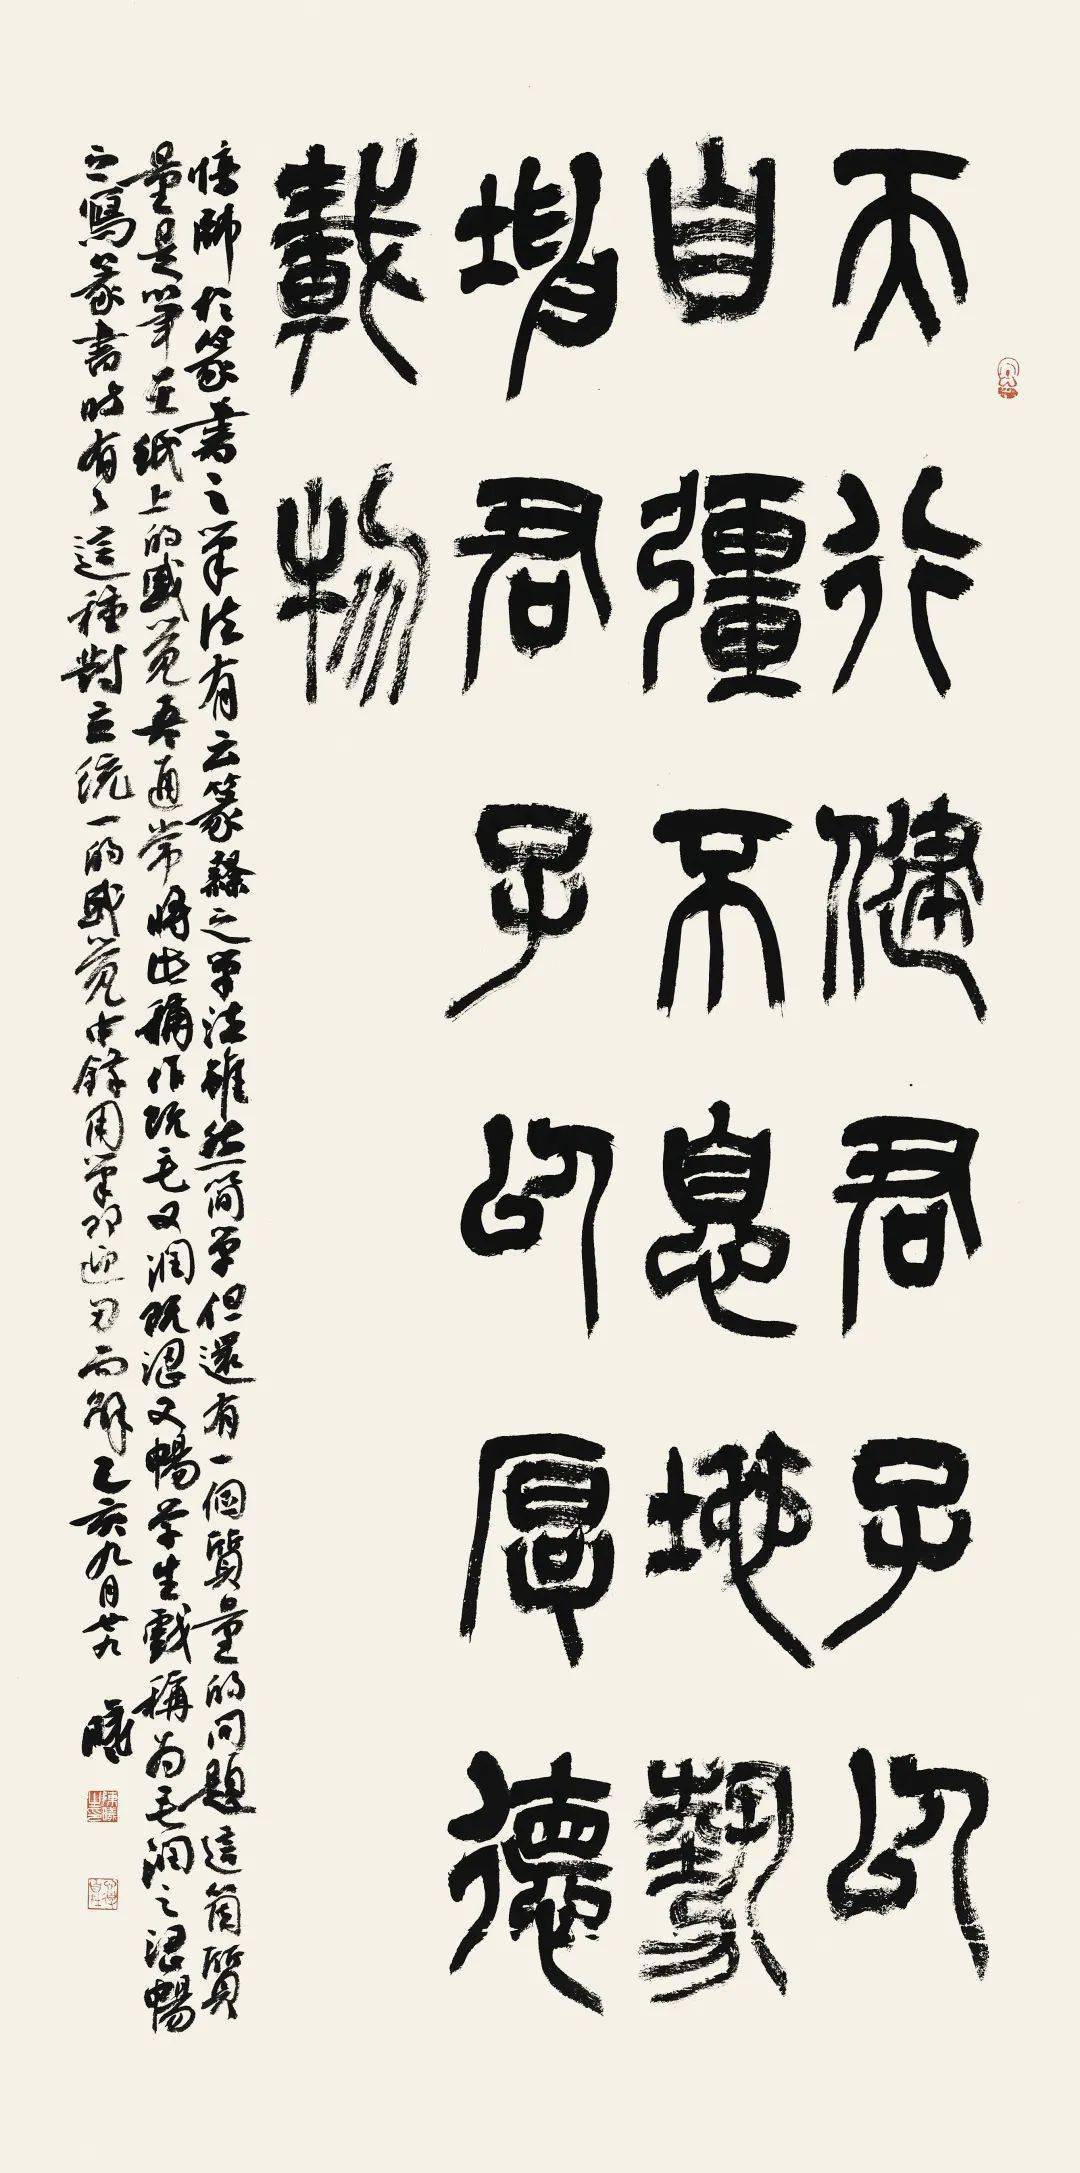 天行健君子以
自彊不息地勢
𡎐君子以厚德
載物
師於篆書之筆法有云篆隸之筆法雖然簡單但還有一個質量的问題這箇質
量是筆在紙上的感覚吾通常將此稱作既毛又润既澀又暢学生戲稱为毛润之澀暢
之寫篆書時有了這種對立統一的感覚中鋒用筆即迎刃而解乙亥九月廿九 曦